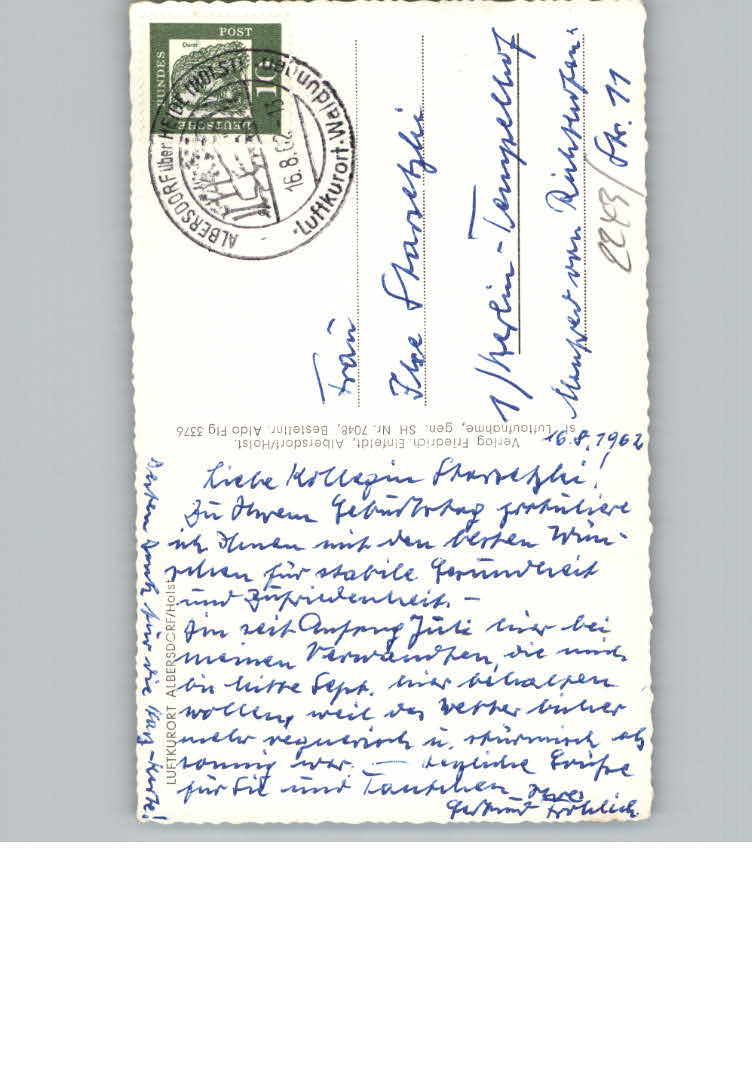 16.8.1962
Liebe Kollegin Starsetzki!
Zu Ihrem Geburtstag gratuliere
ich Ihnen mit den besten Wün-
schen für stabile Gesundheit
und Zufriedenheit. –
Bin seit Anfang Juli hier bei
meinen Verwandten, die mich
bis Mitte Sept. hier behalten
wollen, weil das Wetter bisher
mehr regnerisch u. stürmisch als
sonnig war. – Herzliche Grüße
für Sie und Tantchen Ihre
Gertrud Fröhlich.
Besten Dank für die Harz-Karte!
Frau
Ilse Starsetzki
1/Berlin-Tempelhof
Manfred von Richthofen-
Str. 11
2243/
DEUTSCHE BUNDESPOST
Dürer
10
ALBERSDORF über HEIDE (HOLST)
16.8.62
Luftkurort · Waldungen
Verlag Friedrich Einfeldt, Albersdorf/Holst.
Luftaufnahme, gen. SH Nr. 7048, Bestellnr. Aldo Flg 3376
LUFTKURORT ALBERSDORF/Holst.